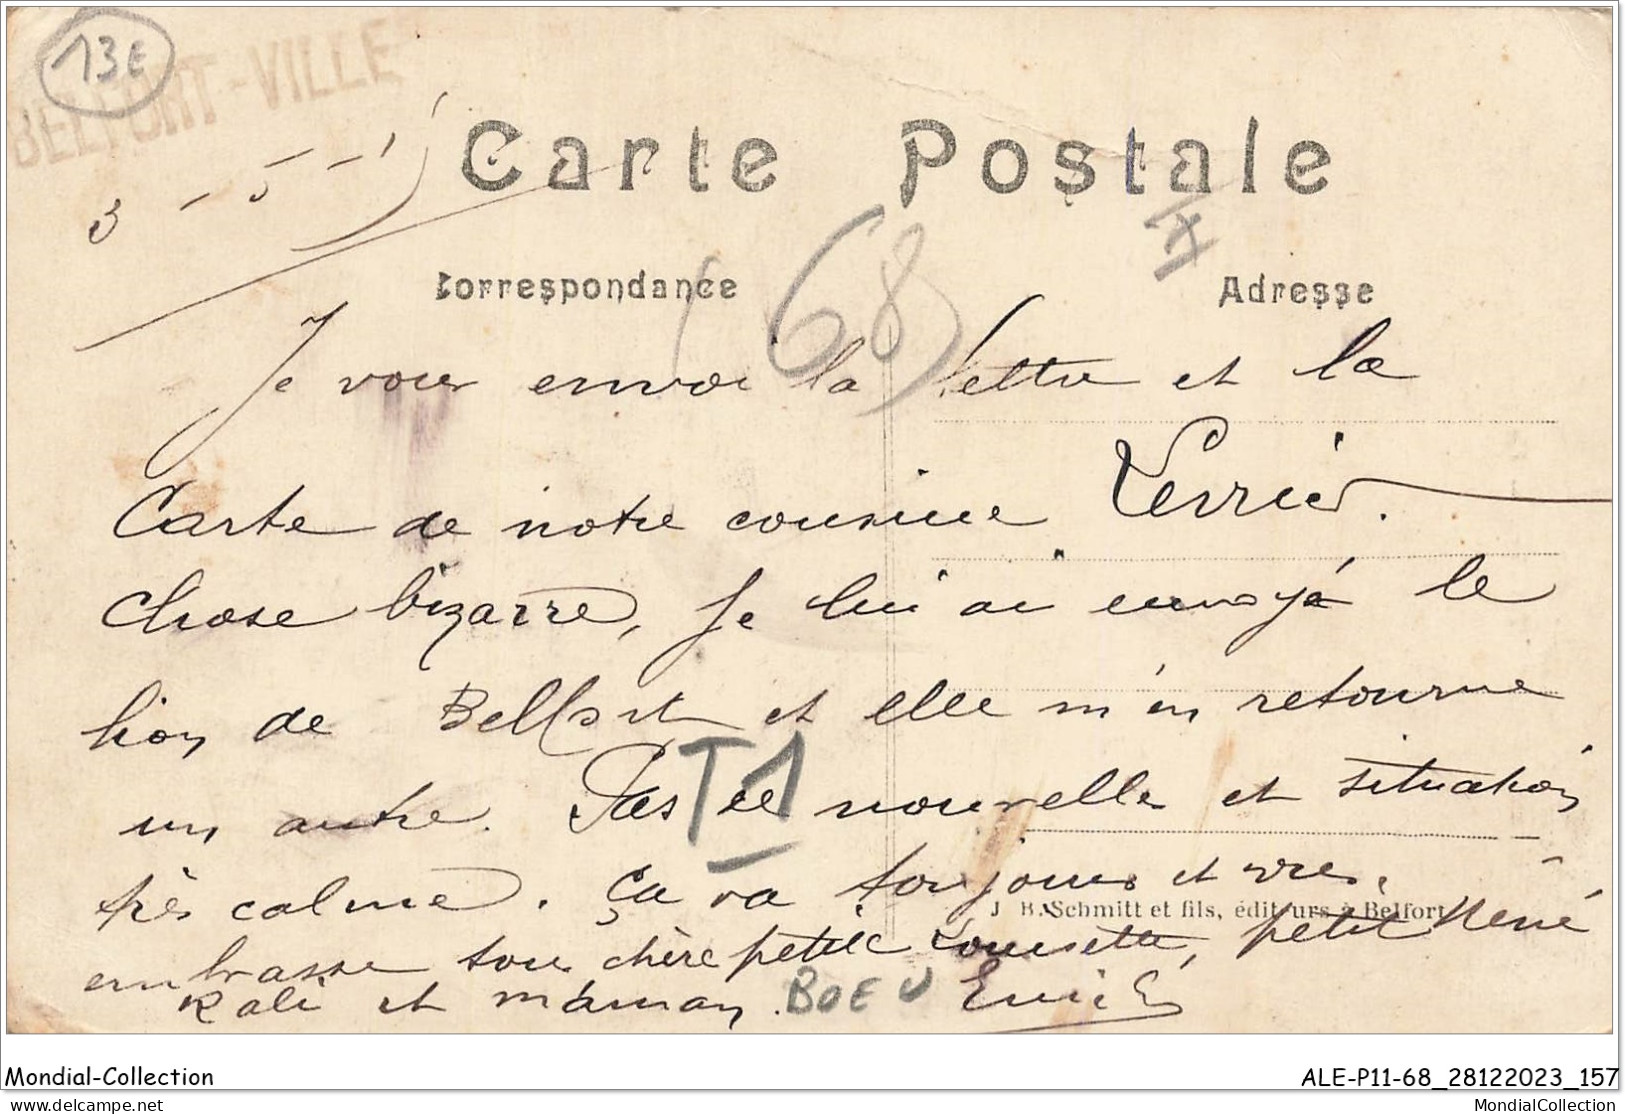 13€
BELFORT-VILLE
3 - 5 - 1
Carte Postale
Correspondance
Adresse
(68)
Je vous envoi la lettre et la
Carte de notre cousine Verrier.
chose bizarre, Je lui ai envoyé le
lion de Belfort et elle m'en retourne
un autre. Pas de nouvelle et situation
T1
très calme. ça va toujours et vres.
J. B. Schmitt et fils, éditeurs à Belfort
embrasse tous chère petite Louisette, petit René
Rali et maman. BOEU Emile
Mondial-Collection
ALE-P11-68_28122023_157
delcampe.net
MondialCollection